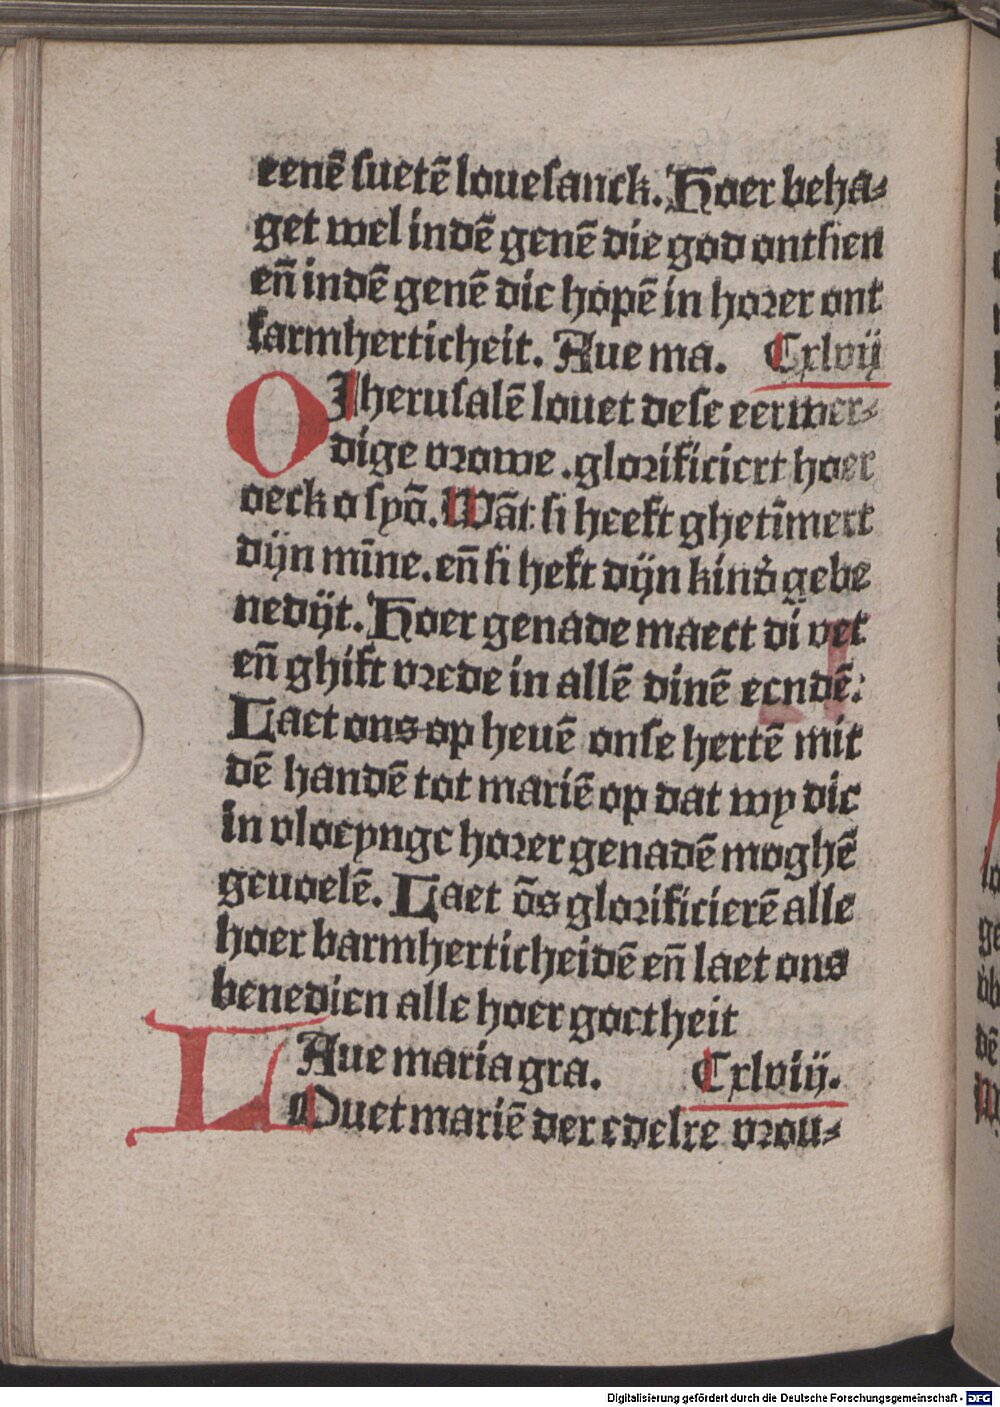 eenē suetē louesanck. Hoer beha-
get wel indē genē die god ontsien
en̄ indē genē die hopē in horer ont
farmherticheit. Aue ma. Cxlvij
O Iherusalē louet dese eerwer-
dige vrowe .glorificiert hoer
oeck o syō. Wāt si heeft ghetīmert
dijn mīne. en̄ si heft dijn kind̓ gebe
nedijt. Hoer genade maect di vet
en̄ ghift vrede in allē dinē eendē:
Laet ons op hevē onse hertē mit
dē handē tot mariē op dat wy die
in vloeynge horer genadē moghē
geuoelē. Laet ōs glorificierē alle
hoer barmherticheidē en̄ laet ons
benedien alle hoer goetheit
Aue maria gra. Cxlviij.
LOuet mariē der edelre vrou-
Digitalisierung gefördert durch die Deutsche Forschungsgemeinschaft - DFG